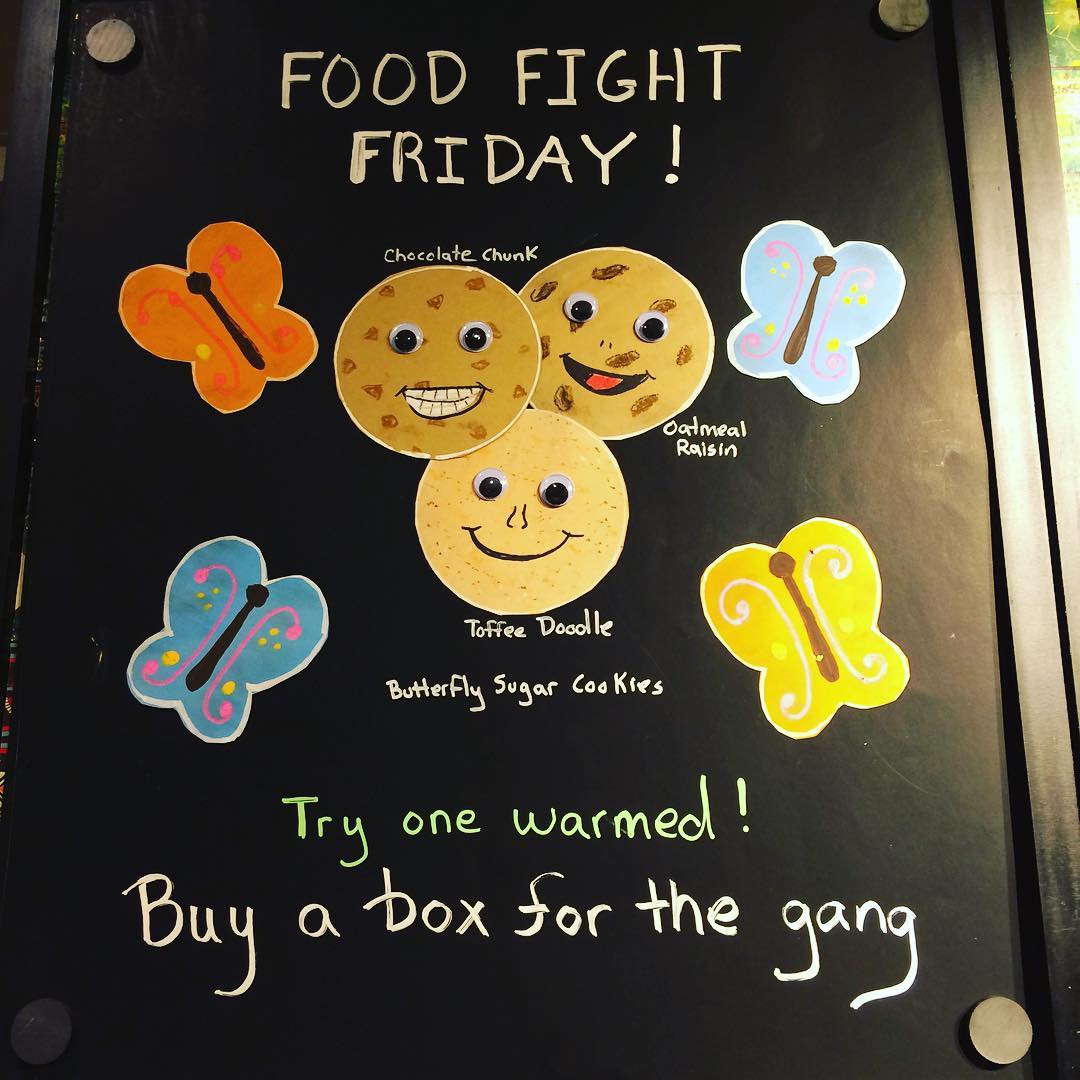 FOOD FIGHT
FRIDAY!
Chocolate Chunk
Oatmeal
Raisin
Toffee Doodle
Butterfly Sugar Cookies
Try one warmed!
Buy a box for the gang